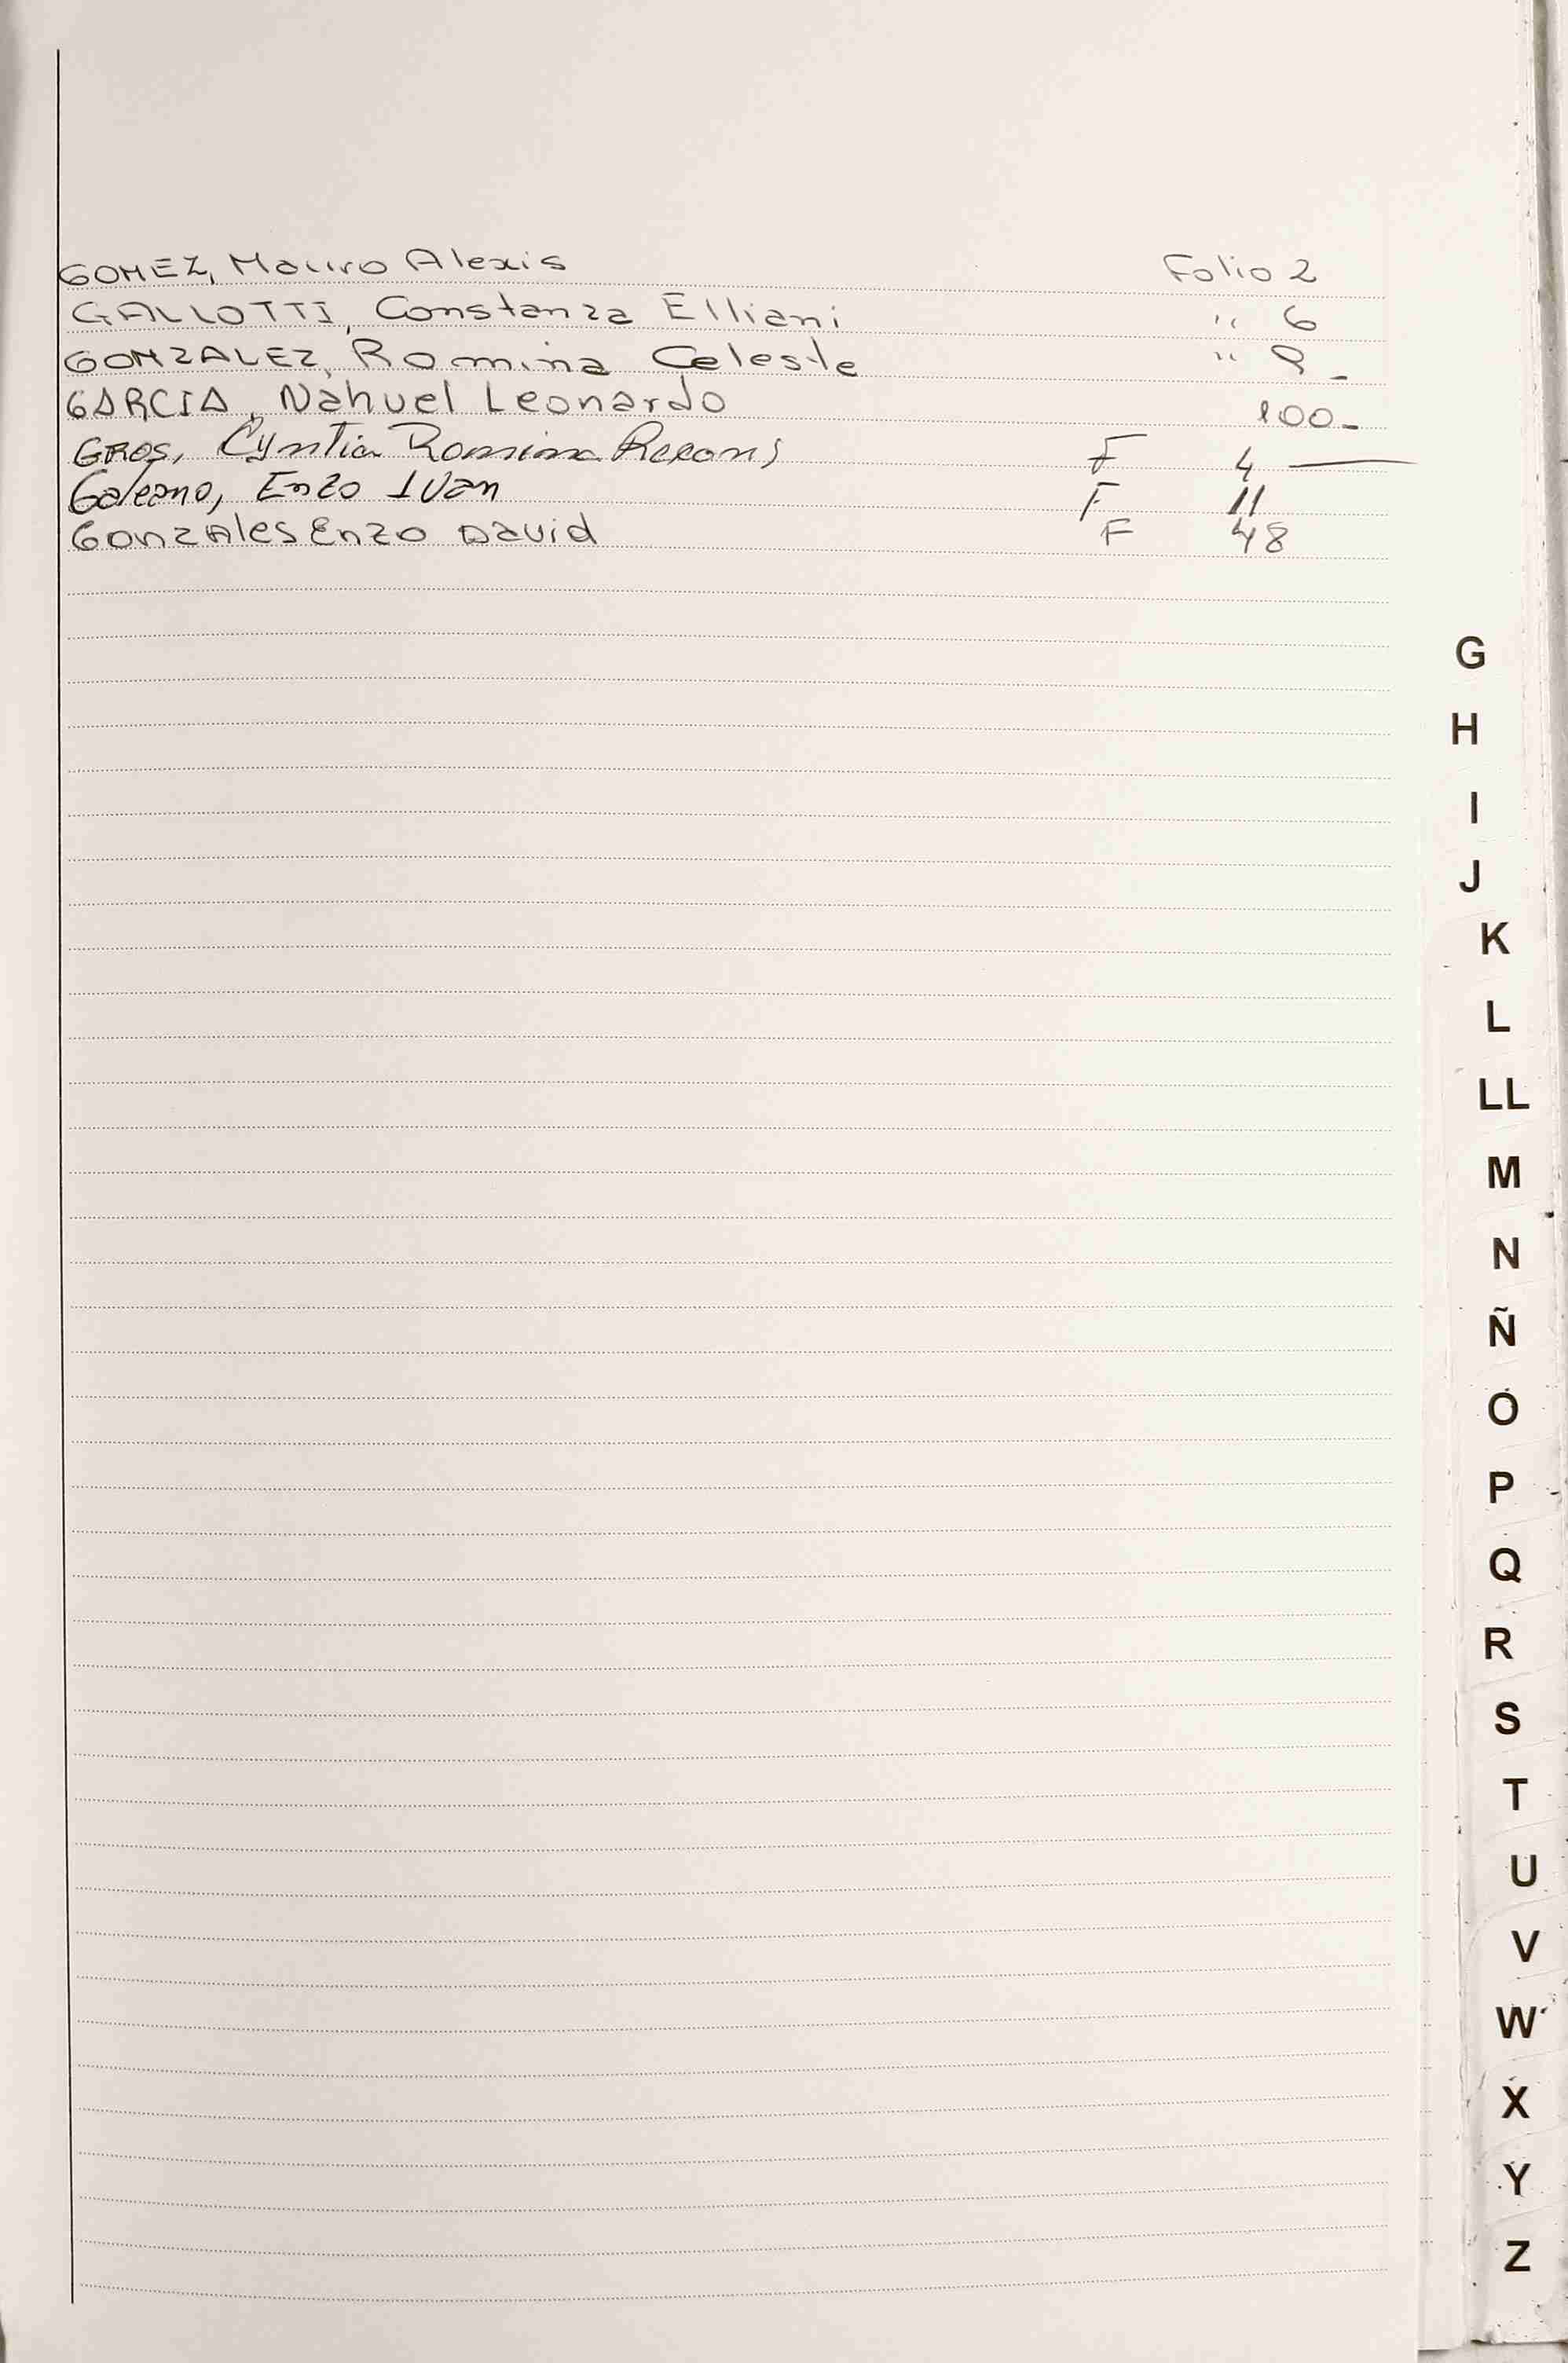 GOMEZ, Mauro Alexis Folio 2
GALLOTTI, Constanza Elliani " 6
GONZALEZ, Romina Celeste "
GARCIA, Nahuel Leonardo 100-
GROS, Cyntia Romina F 4
Galeano, Enzo IVan F 11
GonzAles Enzo David F 48
G
H
I
J
K
L
LL
M
N
Ñ
O
P
Q
R
S
T
U
V
W
X
Y
Z